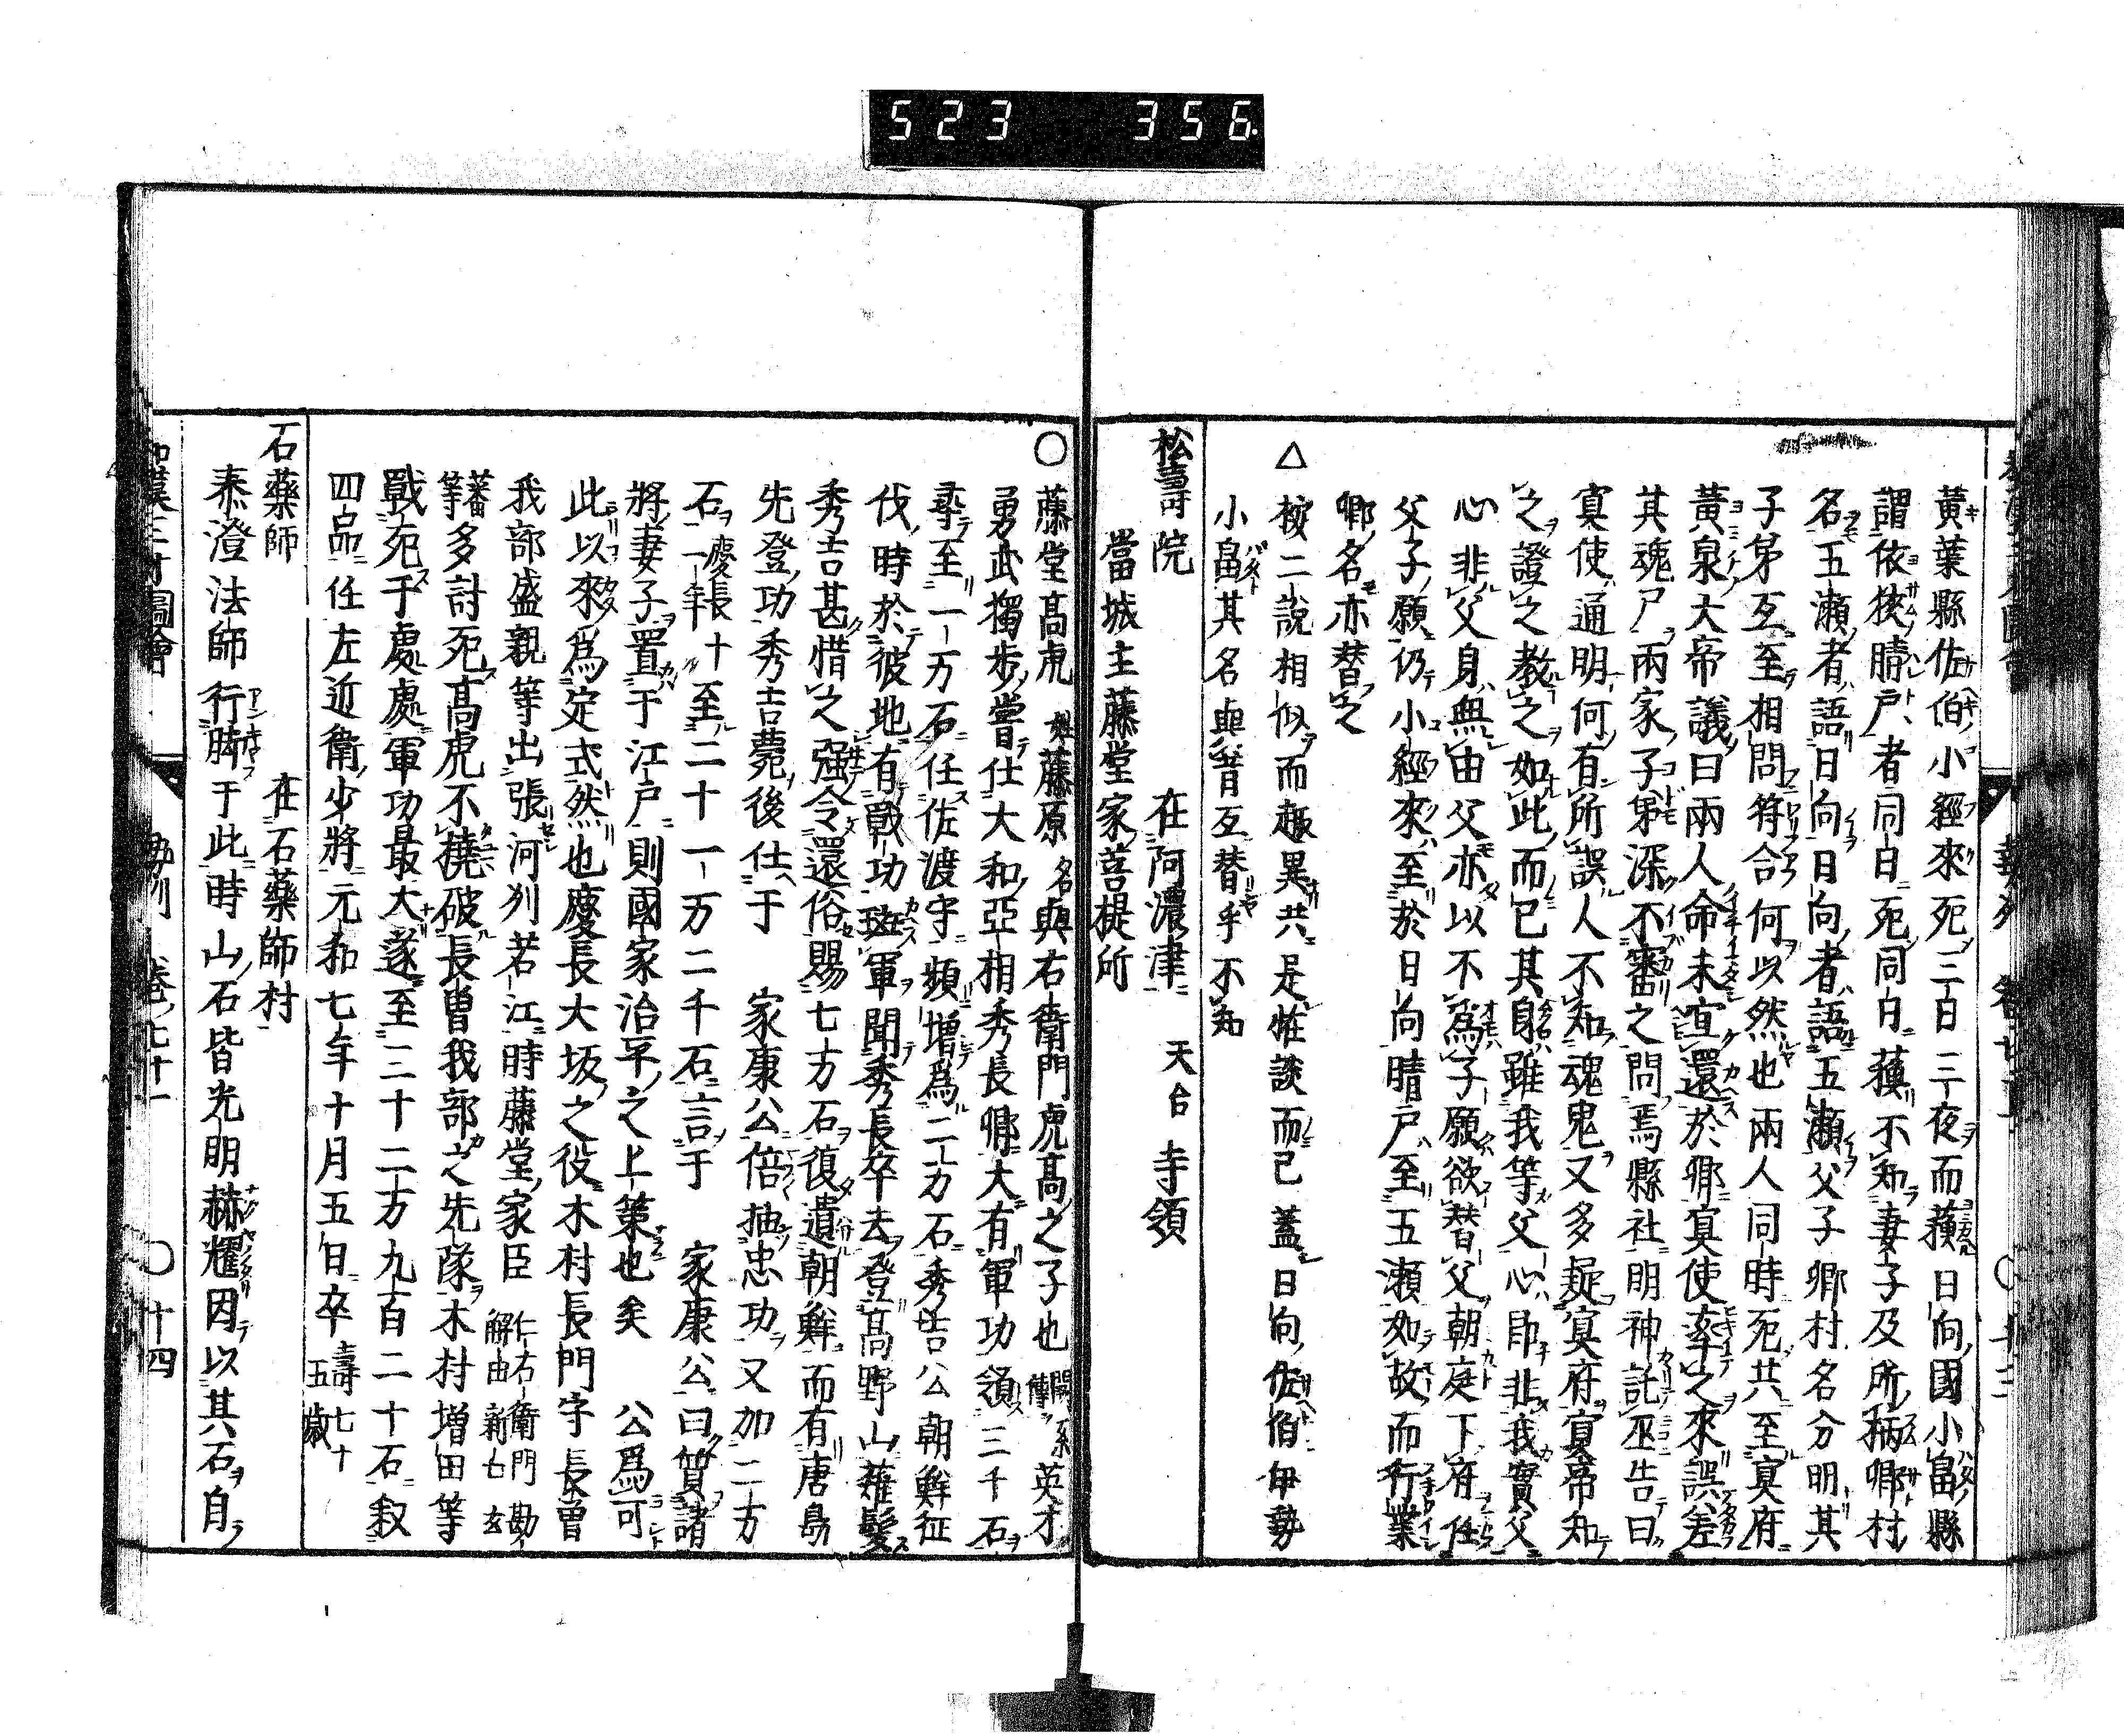 523 356.
黃葉縣佐伯小經來死三日三夜而蘓日向國小畠縣
謂依狹晴戸者同日死同日蘓不知妻子及所栖鄉村
名五瀬者語日向日向者語五瀬父子鄉村名分明其
子弟互至相問符合何以然也兩人同時死共至冥府
黃泉大帝議曰兩人命未宜還於鄉冥使率之來誤差
其魂尸兩家子弟深不審之問焉縣社明神託巫告曰
冥使通明何有所誤人不知魂鬼又多疑冥府冥帝知
之證之教之如此而已其身雖我等父心即非我實父
心非父身無由父亦以不爲子願欲替父朝庭下府任
父子願仍小經來至於日向晴戸至五瀬如故而行業
鄉名亦替之
△按二說相似而趣異共是怪談而已蓋日向佐伯伊勢
小畠其名與昔互替乎不知
松壽院 在阿濃津 天台 寺領
當城主藤堂家菩提所
○藤堂高虎 姓藤原 名與右衛門虎高之子也 英才
勇武獨步嘗仕大和亞相秀長卿大有軍功領三千石
尋至一万石任佐渡守頻增爲二万石秀吉公朝鮮征
伐時於彼地有戰功班軍聞秀長卒去登高野山薙髮
秀吉甚惜之强令還俗賜七万石復遺朝鮮而有唐島
先登功秀吉薨後仕于 家康公倍抽忠功又加二万
石慶長十一年至二十一万二千石言于 家康公曰質諸
將妻子置于江戸則國家治平之上策也矣 公爲可
此以來爲定式然也慶長大坂之役木村長門守長曽
我部盛親等出張河刕若江時藤堂家臣仁右衛門勘解由新七玄
蕃等多討死高虎不撓破長曽我部之先隊木村增田等
戰死于處處軍功最大遂至三十二万九百二十石叙
四品任左近衛少將元和七年十月五日卒壽七十五歲
石藥師 在石藥師村
泰澄法師行脚于此時山石皆光明赫耀因以其石自
和漢三才圖會 勢州 卷七十一 ○十四